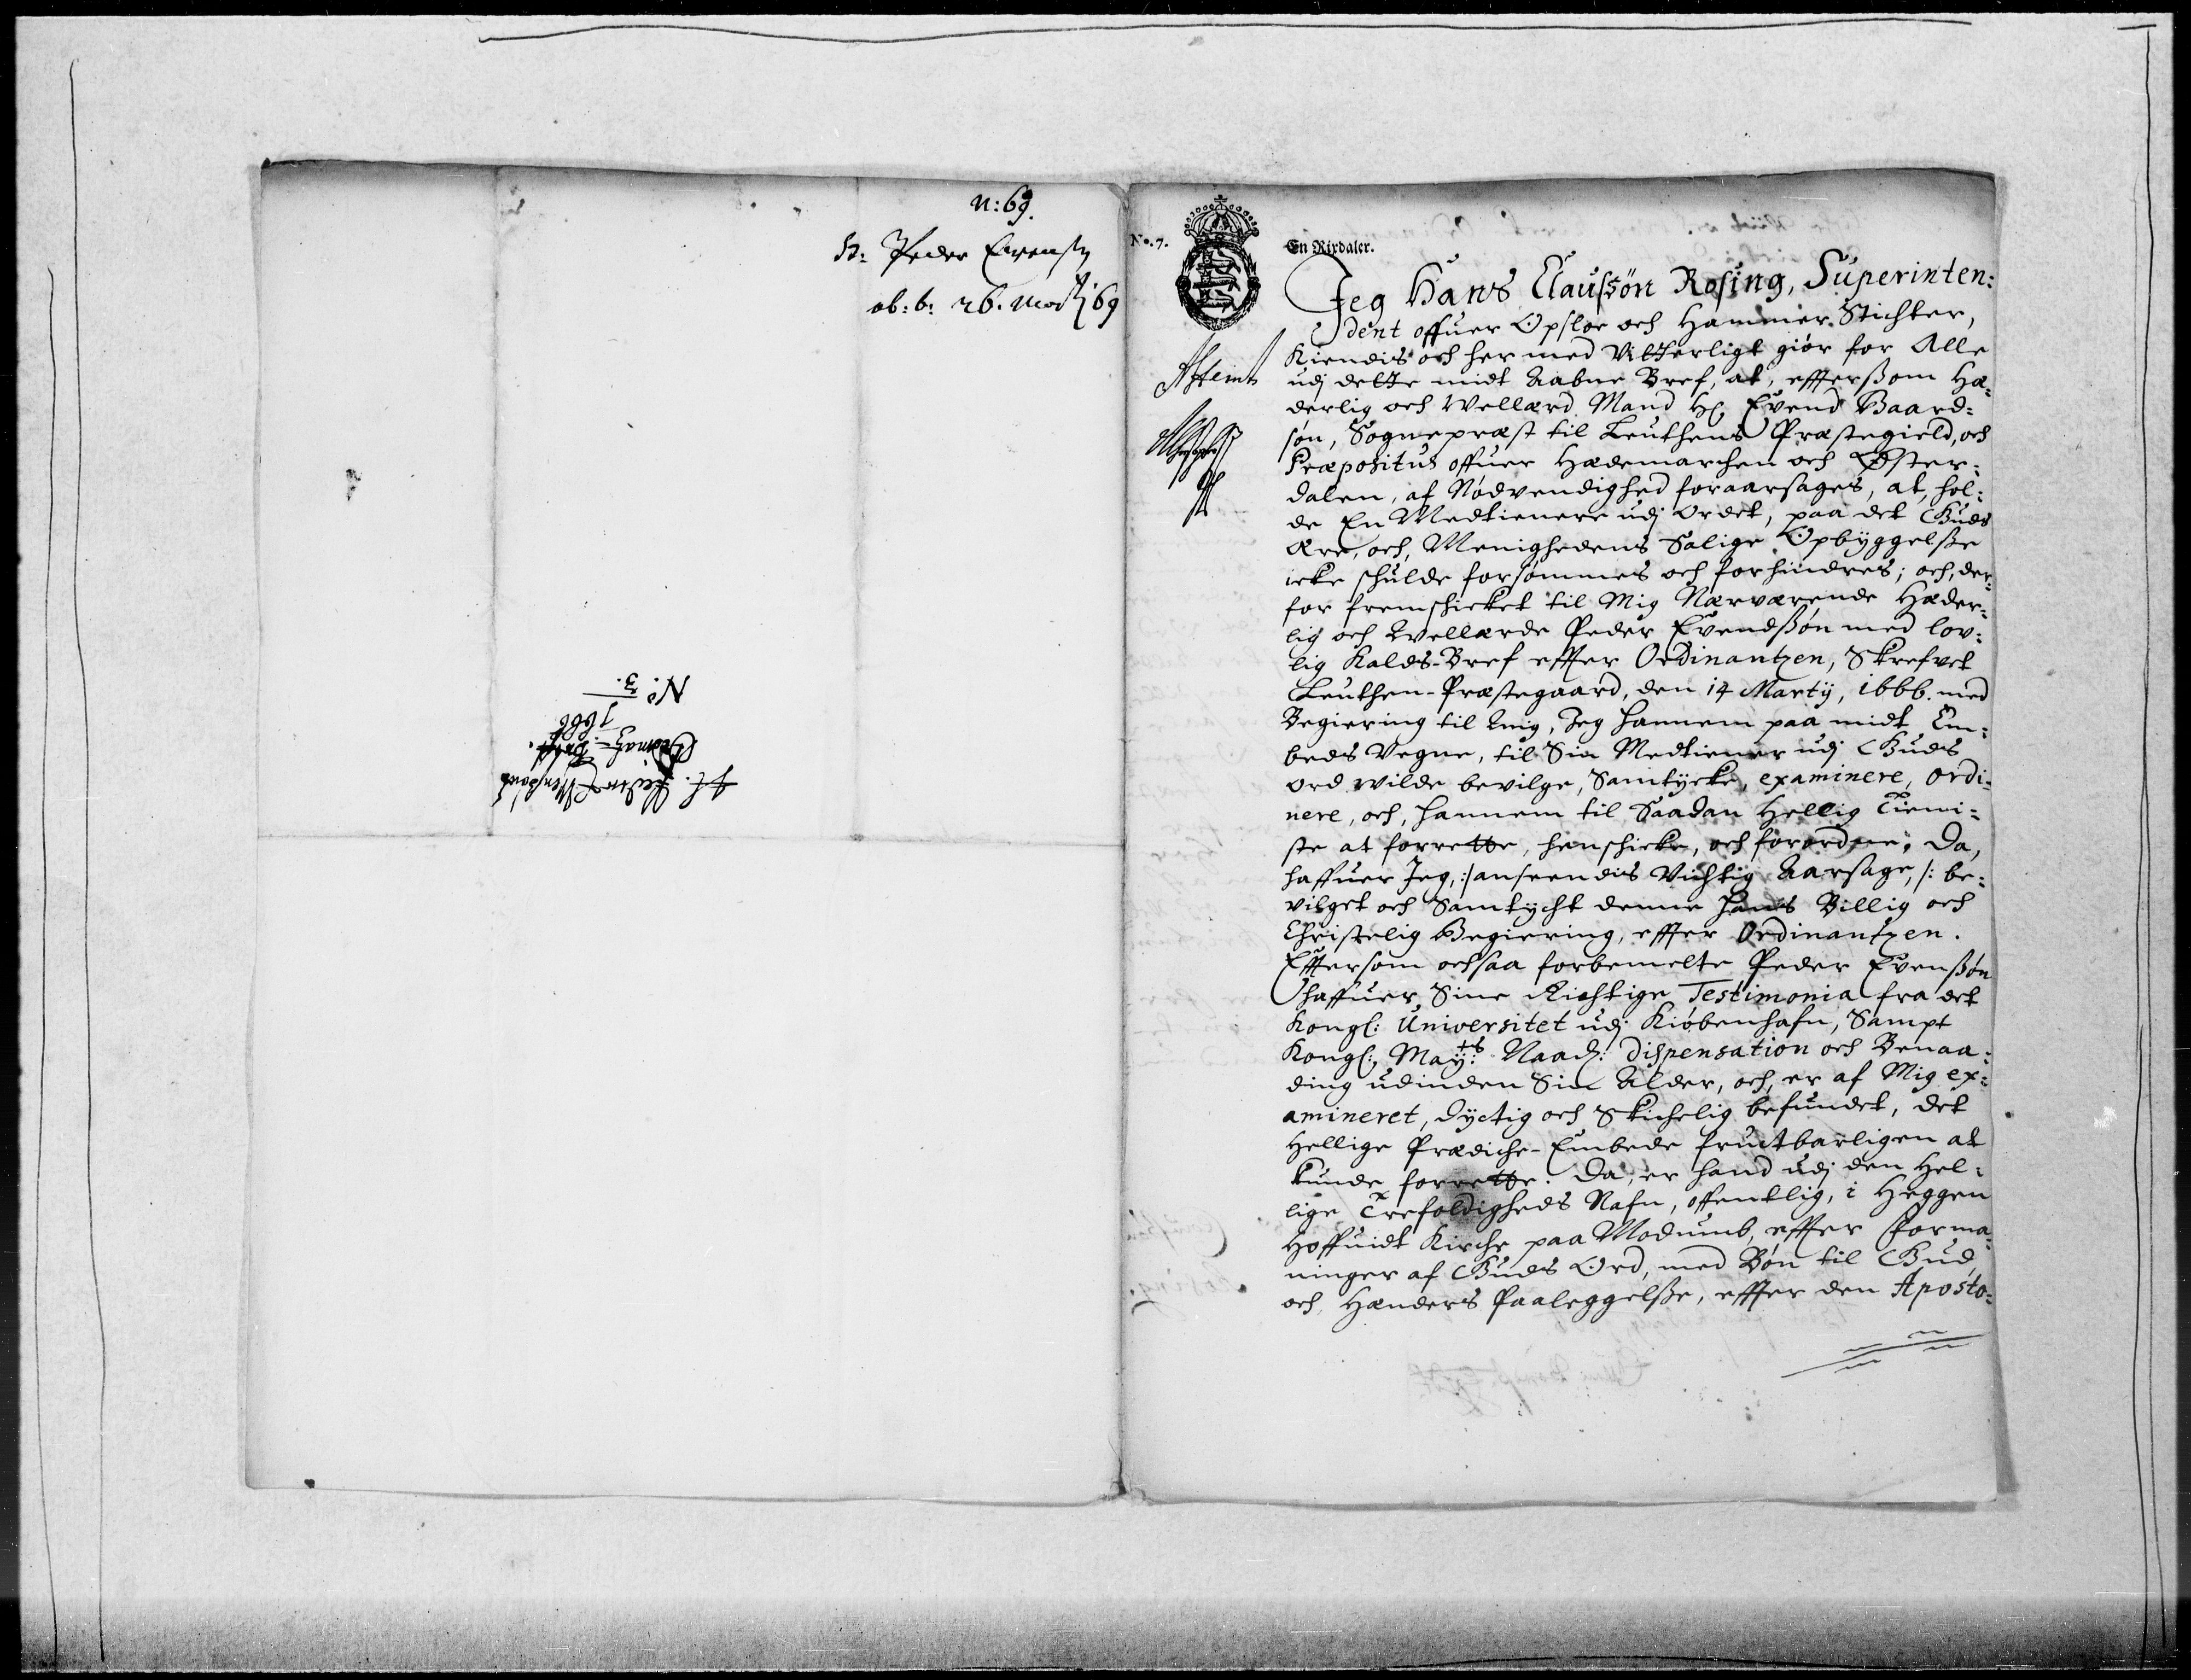 n: 69.
H: Peder Evensøn
ab: b: 26. Martij 69
No. 3.
1666
Ordinatz-Breff.
H. Peder Evensøns
No. 7.
En Rixdaler.
Jeg Hans Claussön Rosing, Superinten:
dent offuer Opsloe och Hammer Stichter,
Kiendis och her med Vitterligt giör for Alle
udj dette midt Aabne Bref, at, effterßom Hæ:
derlig och Wellærd Mand Hr Evend Baard:
søn, Sognepræst til Leuthens Præstegield, och
Præpositus offuer Hædemarchen och Øster:
dalen, af Nödvendighed foraarsages, at, hol:
de En Medtienere udj Ordet, paa det Guds
Ære, och, Menighedens Salige Opbyggelße
icke schulde forsömmes och forhindres; och, der:
for fremschicket til Mig Nærværende Hæder:
lig och Wellærde Peder Evendßøn med lov:
lig Kalds-Bref effter Ordinantzen, Skrefvet
Leuthen-Præstegaard, den 14 Martij, 1666. med
Begiering til Mig, Jeg hannem paa midt Em:
beds Vegne, til Sin Medtiener udj Guds
ord wilde bevilge, Samtycke, examinere, ordi:
nere, och, hannem til Saadan Hellig Tieni:
ste at forrette, henschicke, och forordne. Da,
haffuer Jeg, :/ anseendis Vichtig Aarsage, /: be:
vilget och Samtycht denne hans Billig och
Christelig Begiering, effter Ordinantzen.
Efftersom ochsaa forbemelte Peder Evenßøn
haffuer Sine Richtige Testimonia fra det
Kongl: Universitet udj Kiøbenhafn, Sampt
Kongl: Mayts: Naad: Dispensation och Benaa:
ding udinden Sin Alder, och, er af Mig ex:
amineret, dyctig och Skichelig befundet, det
Hellige Prædiche-Embede fructbarligen at
kunde forrette. Da, er hand udj den Hel:
lige Trefoldigheds Nafn, offentlig, i Heggen
Hoffuidt Kirche paa Modumb, effter Forma:
ninger af Guds Ord, med Bøn til Gud,
och Hænders Paaleggelße, effter den Aposto: